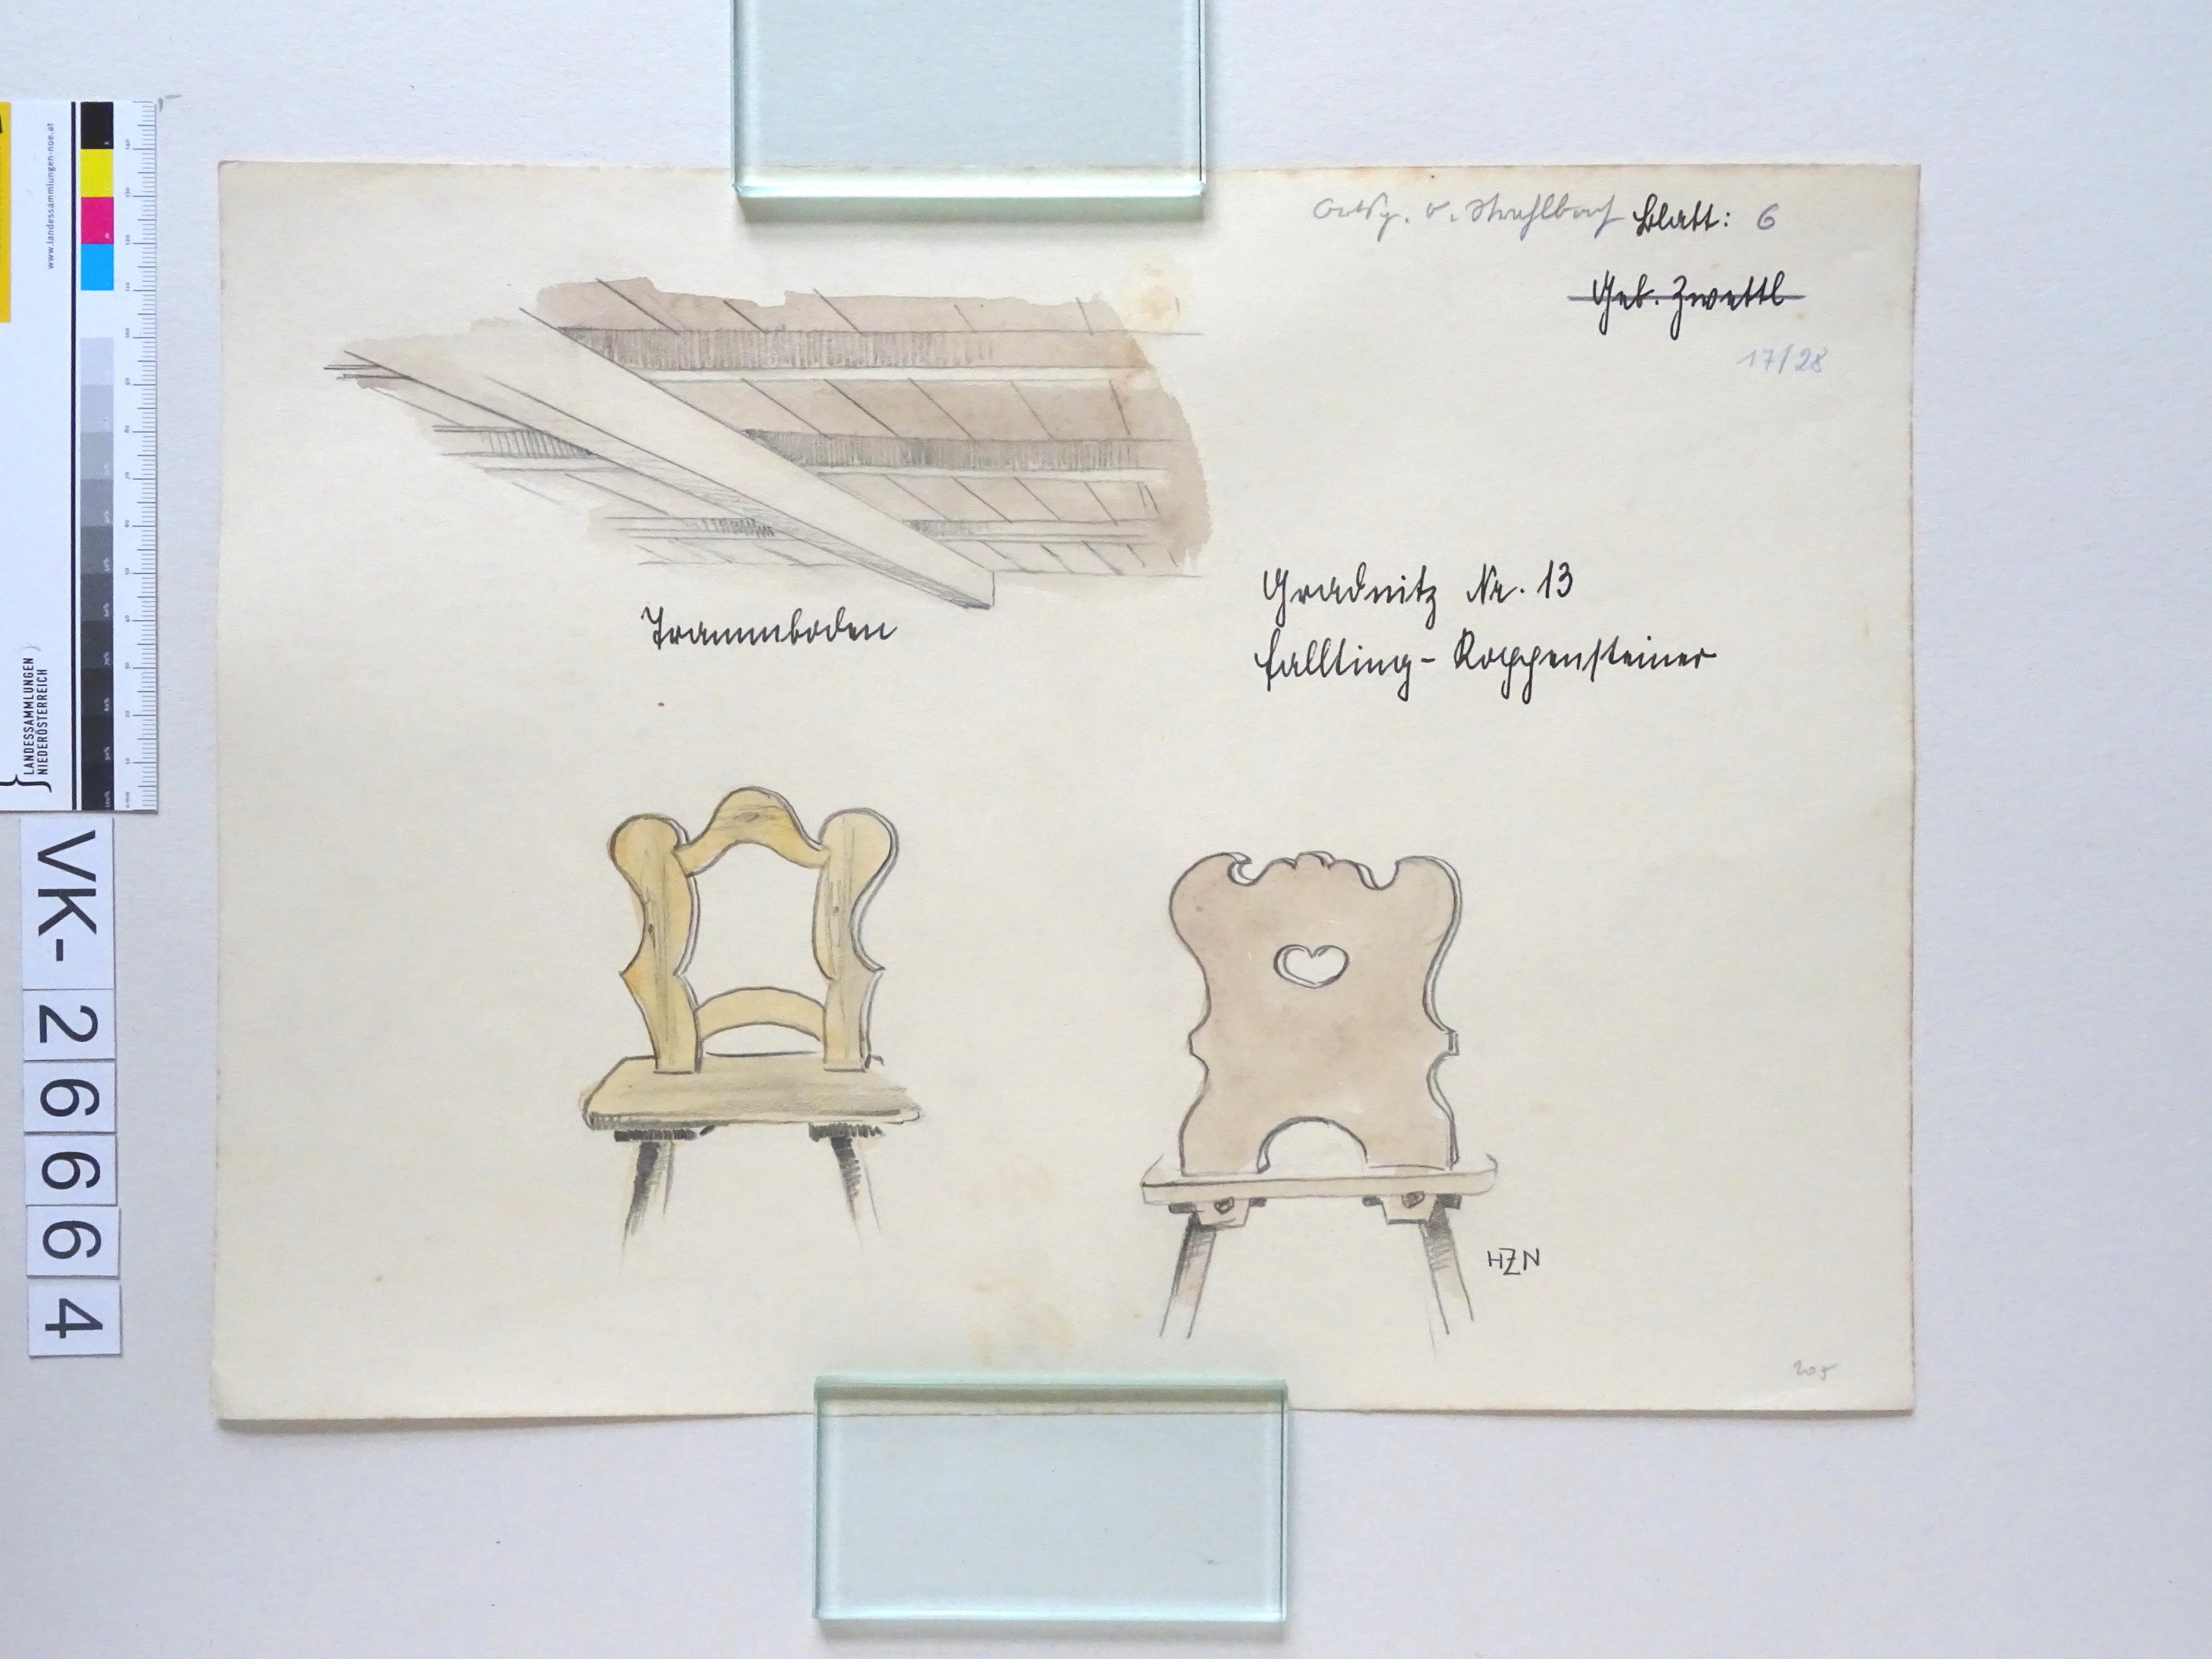 Ortsg. v. Strahlbach Blatt: 6
Geb. Zwettl
17/28
Trammboden
Gradnitz Nr. 13
Fallting - Koppensteiner
HZN
205
www.landessammlungen-noe.at
LANDESSAMMLUNGEN
NIEDERÖSTERREICH
VK-26664